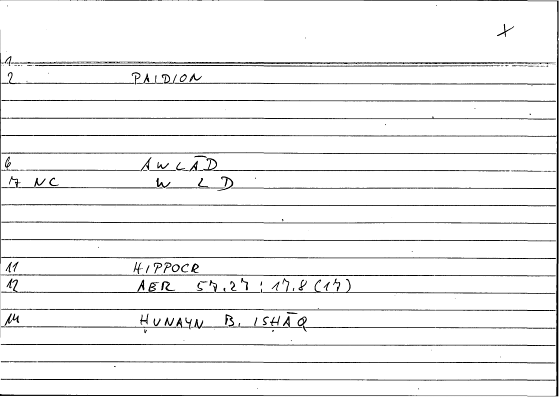 X
1
2 PAIDION
6 AWLĀD
7 NC W L D
11 HIPPOCR
12 AER 57.27 : 17.8 (17)
14 ḤUNAYN B. ISḤĀQ